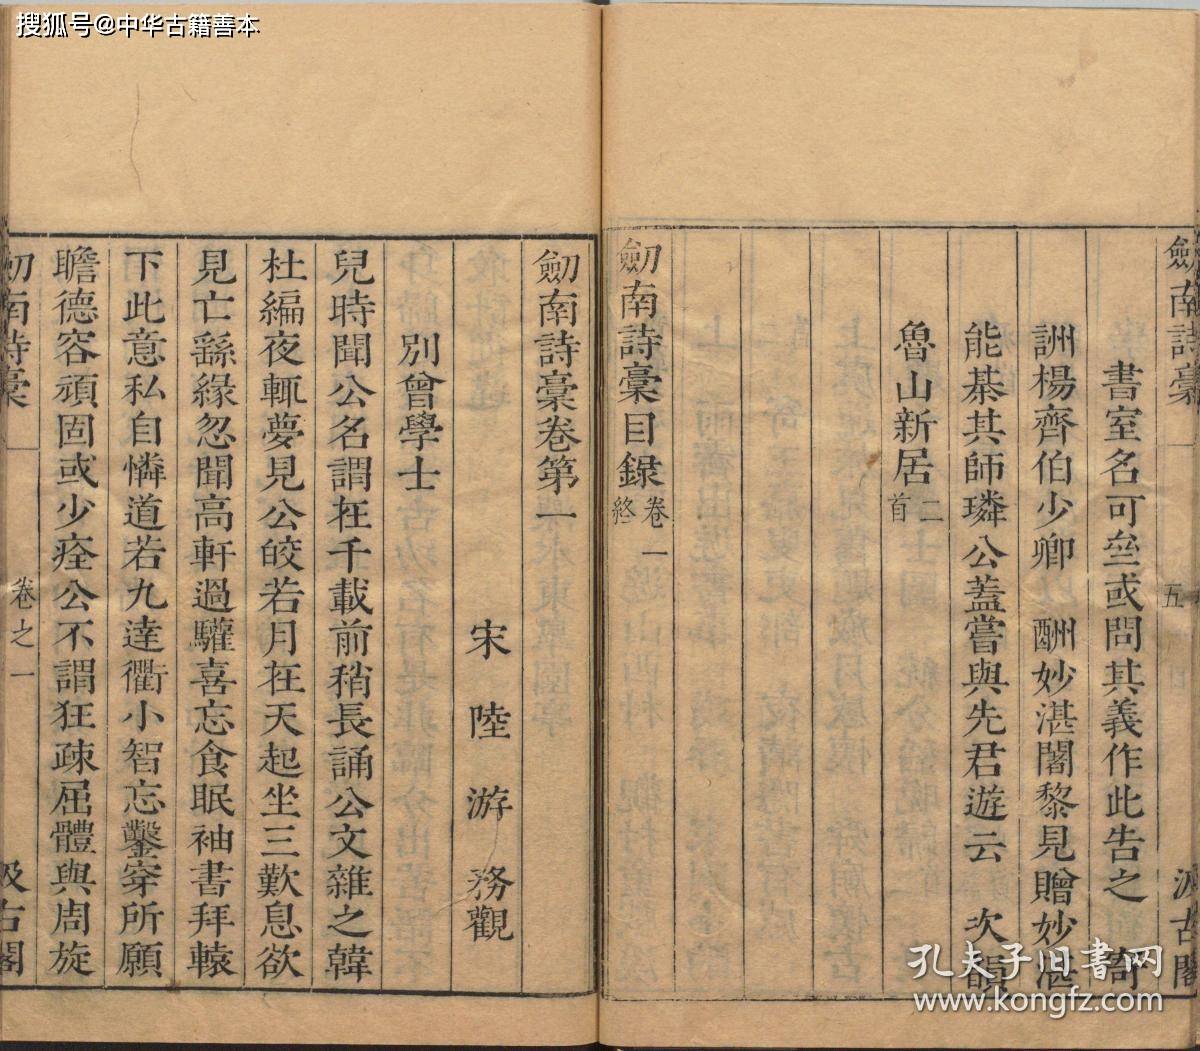 搜狐号@中华古籍善本
劒南詩稾
五
汲古閣
書室名可㘴或問其義作此告之 寄
詶楊齊伯少卿 酬妙湛闍黎見贈妙湛
能棊其師璘公蓋嘗與先君遊云 次韻
魯山新居二首
劒南詩稾目錄卷一終
劒南詩稾卷第一
宋 陸 游 務觀
別曾學士
兒時聞公名謂在千載前稍長誦公文雜之韓
杜編夜輒夢見公皎若月在天起坐三歎息欲
見亡繇緣忽聞高軒過驩喜忘食眠袖書拜轅
下此意私自憐道若九達衢小智忘鑿穿所願
瞻德容頑固或少痊公不謂狂疎屈體與周旋
劒南詩稾
卷之一
汲古閣
孔夫子旧书网
www.kongfz.com